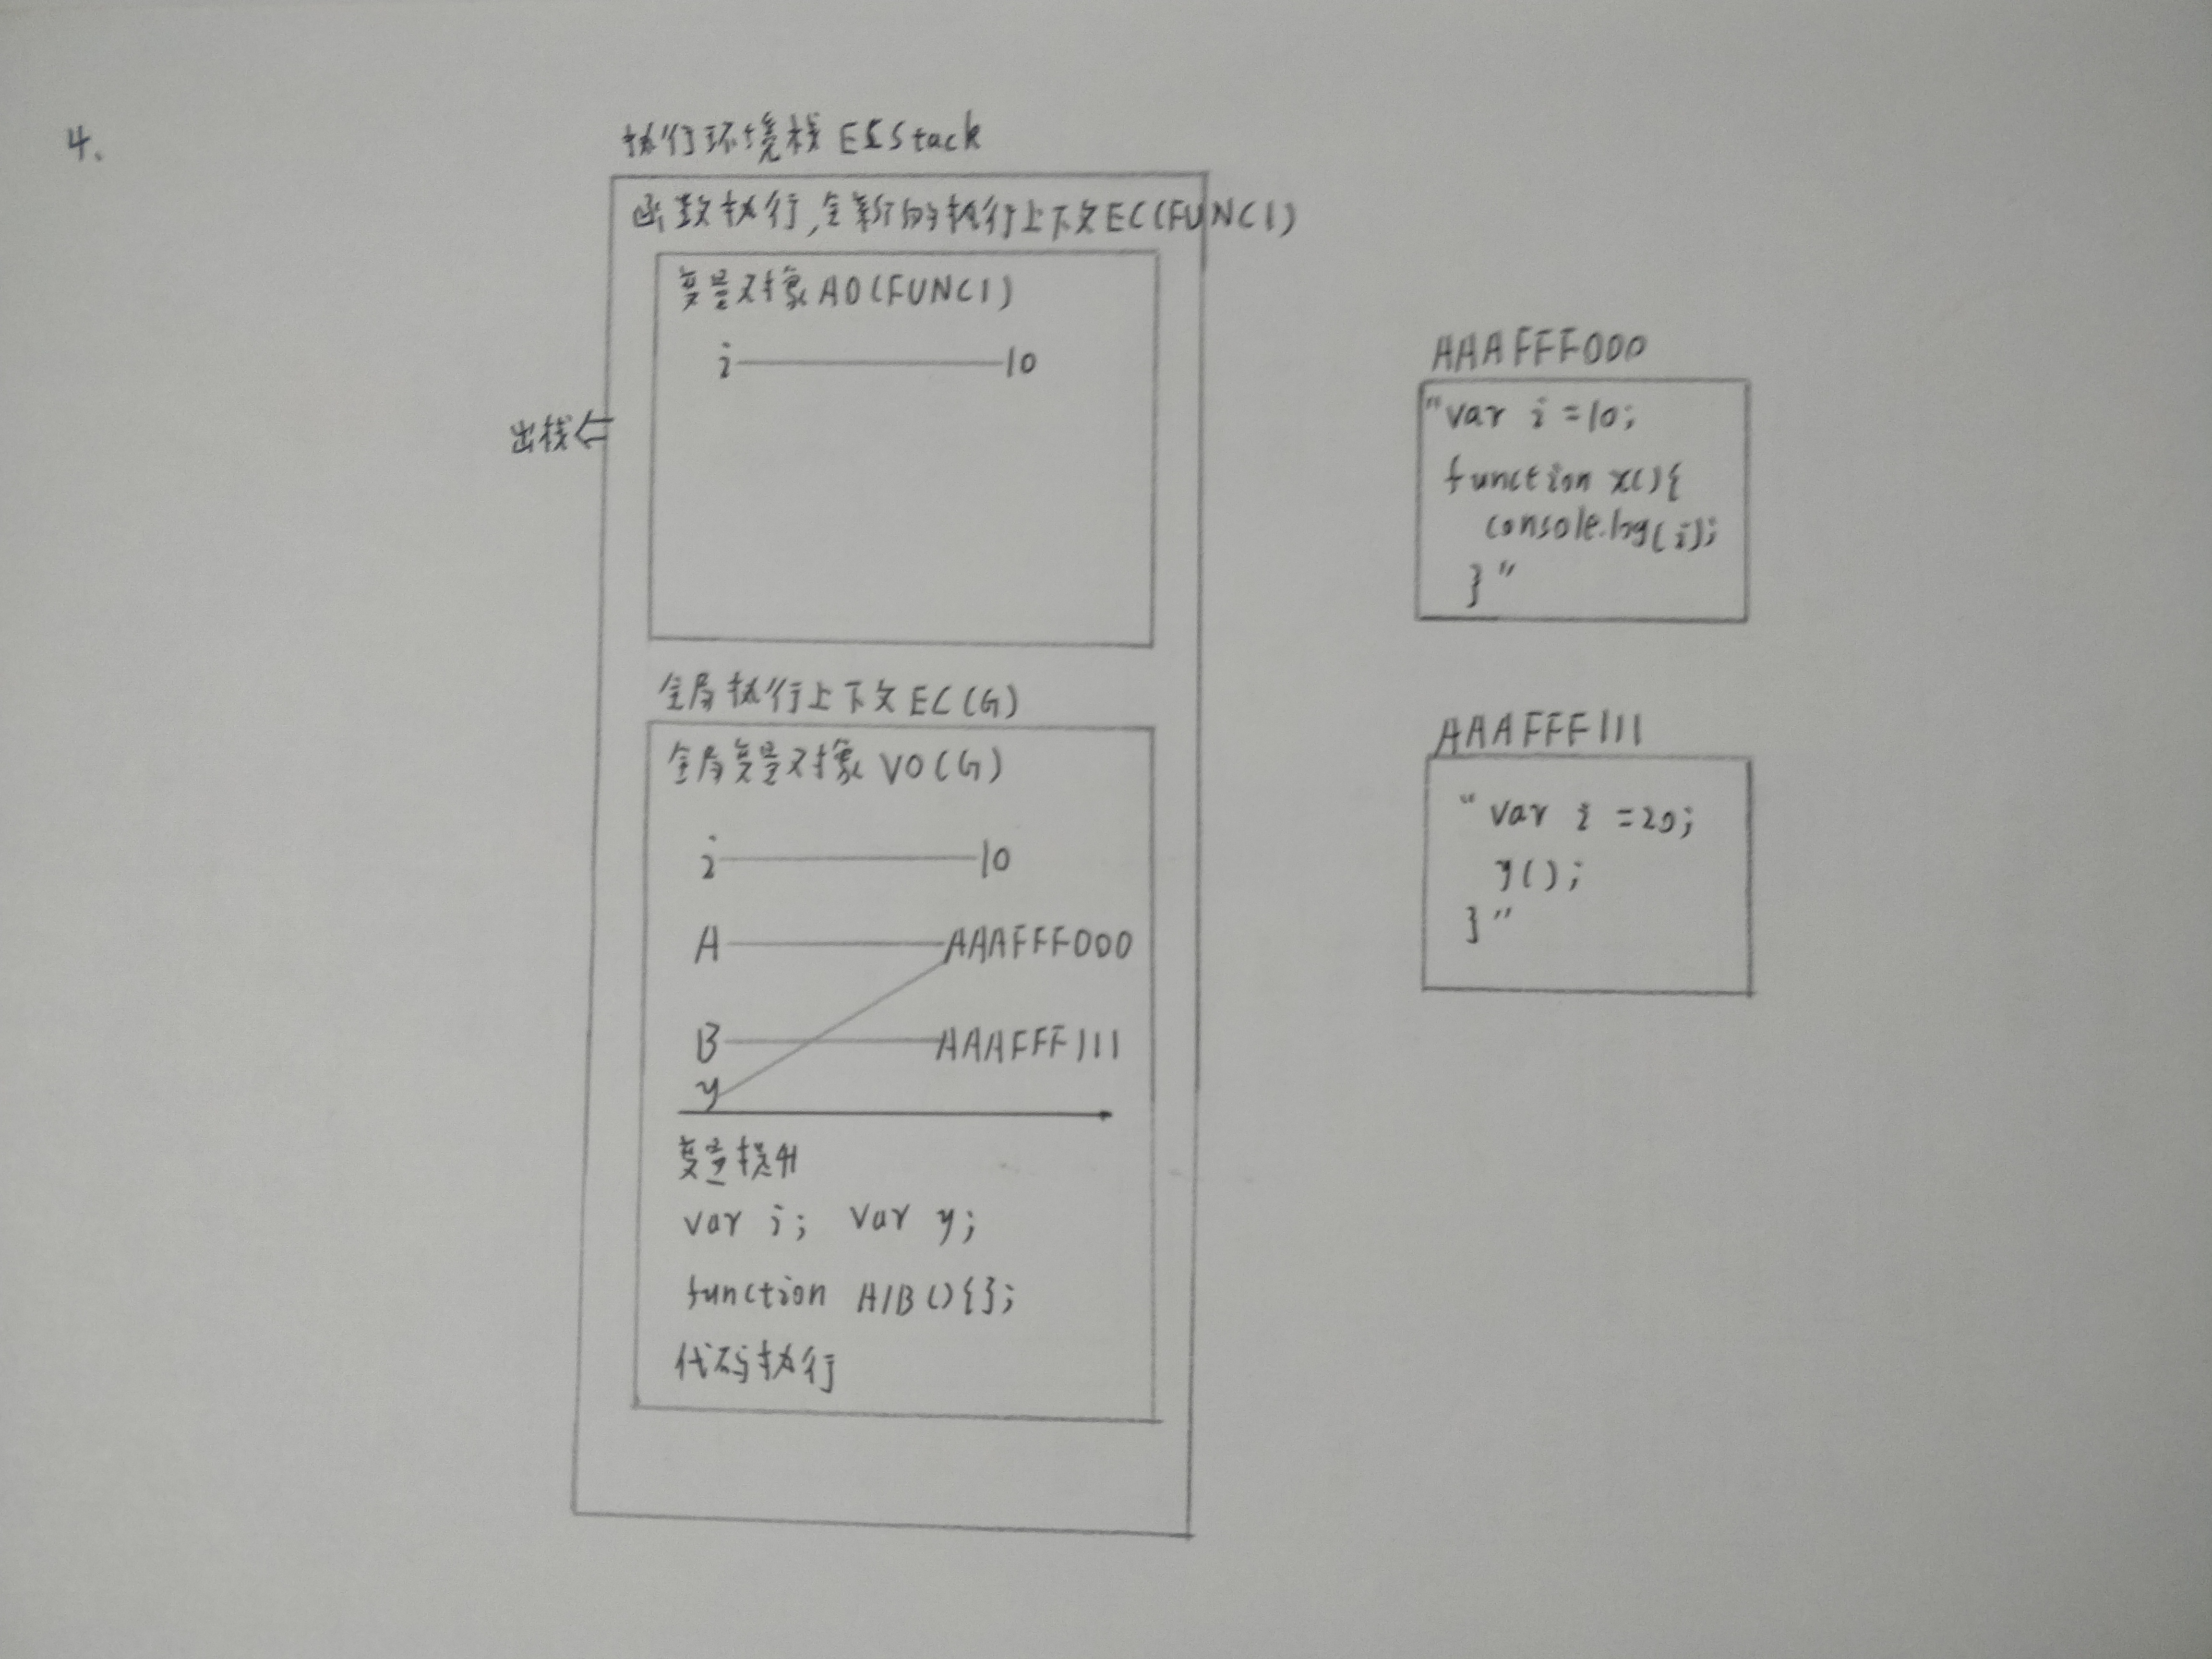 4.
执行环境栈 ECStack
函数执行,全新的执行上下文EC(FUNC1)
变量对象AO(FUNC1)
i 10
出栈
全局执行上下文EC(G)
全局变量对象VO(G)
i 10
A AAAFFF000
B AAAFFF111
y
变量提升
var i; var y;
function A/B(){};
代码执行
AAAFFF000
"var i =10;
function x(){
console.log(i);
}"
AAAFFF111
"var i =20;
y();
}"